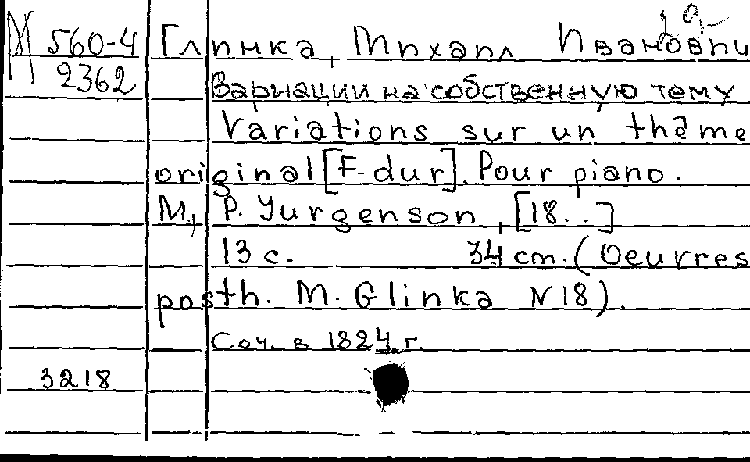 М 560-4
2362
Глинка, Михаил Иванович
Вариации на собственную тему
Variations sur un thème
original [F-dur]. Pour piano.
М., P. Yurgenson, [18..]
13 с. 34 cm. (Oeuvres
posth. M. Glinka N 18).
Соч. в 1824 г.
3218